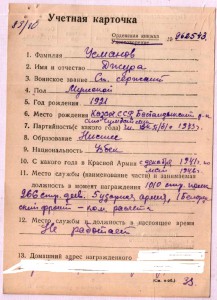 Учетная карточка
Орденская книжка №
1. Фамилия Усманов
2. Имя и отчество Джура
3. Воинское звание Ст. сержант
4. Пол Мужской
5. Год рождения 1921
6. Место рождения Казах ССР, Бостандыкский р-н
7. Партийность (с какого года)
8. Образование Низшее
9. Национальность Узбек
10. С какого года в Красной Армии с декабря 1941 по
май 1946г.
11. Место службы (наименование части) и занимаемая
должность в момент награждения 1010 стр. полк
266 стр. див. 5 ударная армия, 1 Белорус
ский фронт - ком. расчета
12. Место службы и должность в настоящее время
Не работает
13. Домашний адрес награжденного
(См. на об.)